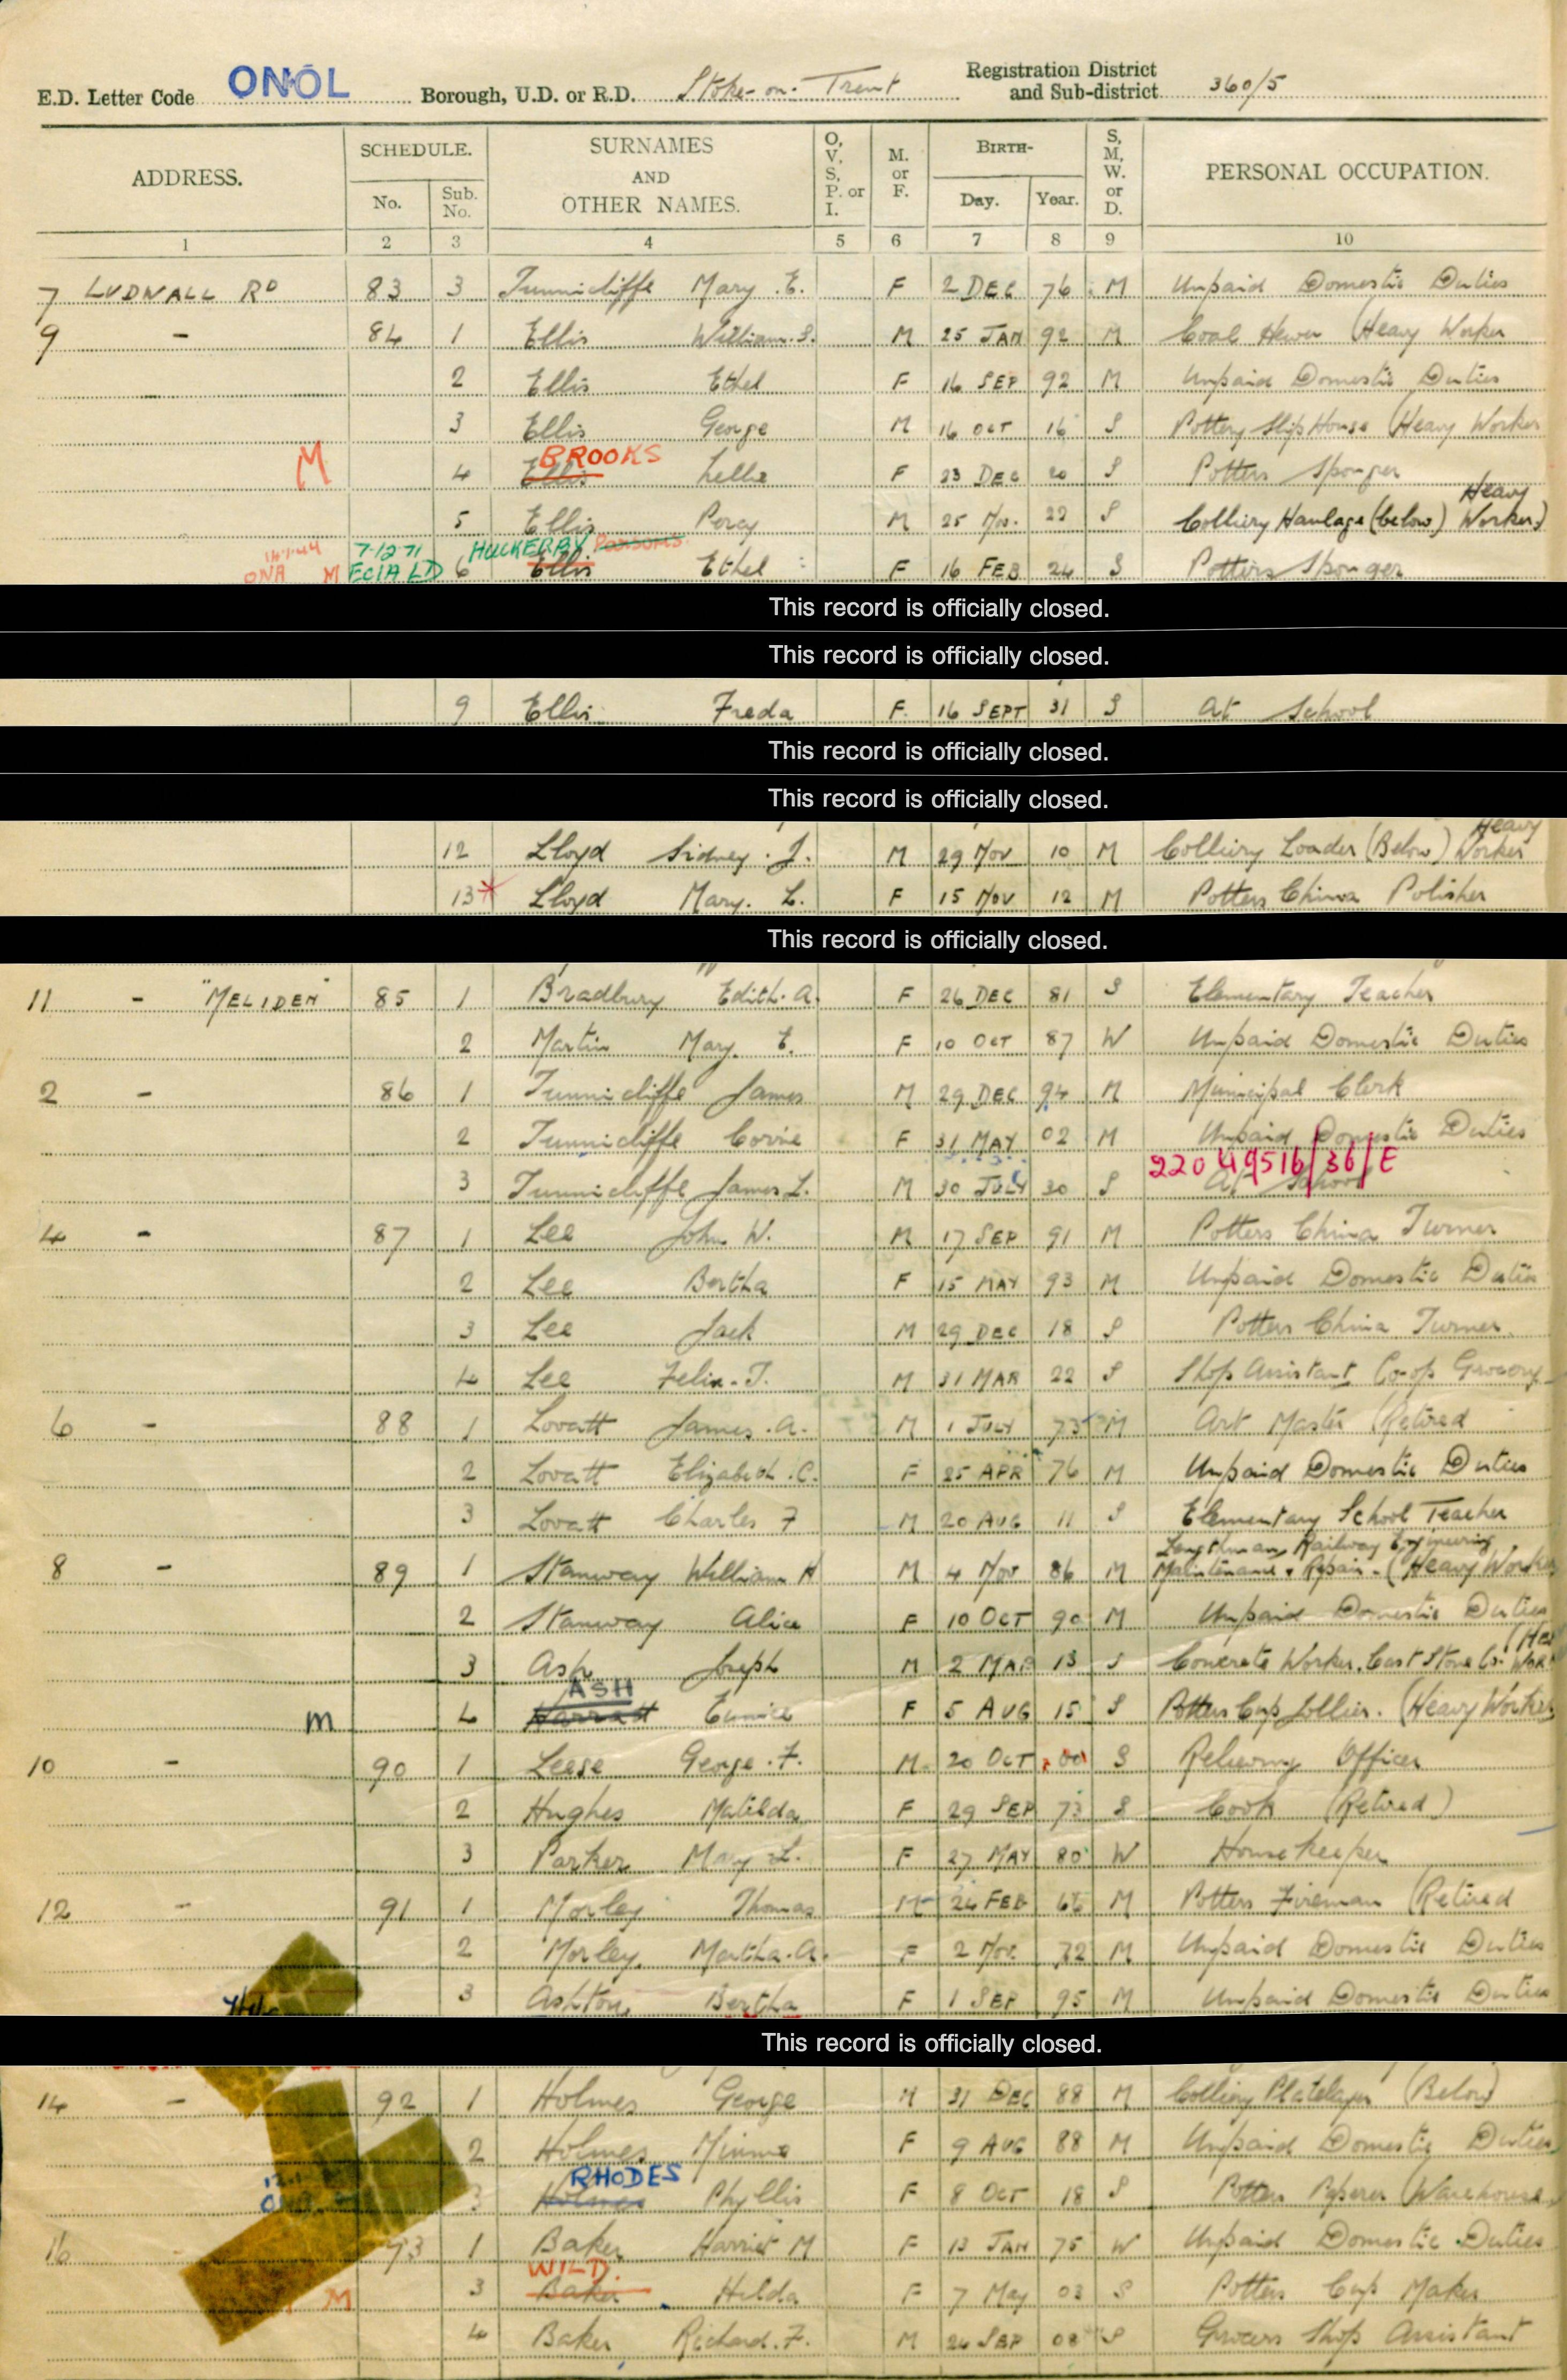 E.D. Letter Code ONOL Borough, U.D. or R.D. Stoke-on-Trent Registration District and Sub-district 360/5
ADDRESS. SCHEDULE. No. Sub. No. SURNAMES AND OTHER NAMES. O, V, S, P. or I. M. or F. BIRTH- Day. Year. S, M, W. or D. PERSONAL OCCUPATION.
1 2 3 4 5 6 7 8 9 10
7 LUDNALL RD 83 3 Tunnicliffe Mary .E. F 2 DEC 76 M Unpaid Domestic Duties
9 - 84 1 Ellis William.S. M 25 JAN 92 M Coal Hewer (Heavy Worker
2 Ellis Ethel F 16 SEP 92 M Unpaid Domestic Duties
3 Ellis George M 16 OCT 16 S Pottery Slip House (Heavy Worker
BROOKS
M 4 Ellis Lellie F 23 DEC 20 S Potters Sponger
Heavy
5 Ellis Percy M 25 Nov. 22 S Colliery Haulage (below) Worker)
14.1.44 7.12 71 HUCKERBY Parsons
ONA M ECIA LD 6 Ellis Ethel F 16 FEB 24 S Potters Sponger
This record is officially closed.
This record is officially closed.
9 Ellis Freda F. 16 SEPT 31 S At School
This record is officially closed.
This record is officially closed.
Heavy
12 Lloyd Sidney . J. M 29 Nov 10 M Colliery Loader (Below) Worker
13* Lloyd Mary. L. F 15 Nov 12 M Potters China Polisher
This record is officially closed.
11 - "MELIDEN" 85 1 Bradbury Edith. A. F 26 DEC 81 S Elementary Teacher
2 Martin Mary. E. F 10 OCT 87 W Unpaid Domestic Duties
2 - 86 1 Tunnicliffe James M 29 DEC 94 M Municipal Clerk
2 Tunnicliffe Corrie F 31 MAY 02 M Unpaid Domestic Duties
220 49516/36/E
3 Tunnicliffe James L. M 30 JULY 30 S At School
4 - 87 1 Lee John W. M 17 SEP 91 M Potters China Turner
2 Lee Bertha F 15 MAY 93 M Unpaid Domestic Duties
3 Lee Jack M 29 DEC 18 S Potters China Turner
4 Lee Felix. T. M 31 MAR 22 S Shop Assistant Co-op Grocery
6 - 88 1 Lovatt James .A. M 1 JULY 73 M Art Master (Retired
2 Lovatt Elizabeth .C. F 25 APR 76 M Unpaid Domestic Duties
3 Lovatt Charles F M 20 AUG 11 S Elementary School Teacher
Lengthman, Railway Engineering
8 - 89 1 Stanway William H M 4 Nov 86 M Maintenance & Repair - (Heavy Worker
2 Stanway Alice F 10 OCT 90 M Unpaid Domestic Duties
3 Ash Joseph M 2 MAR 13 S Concrete Worker, Cast Stone Co.
ASH
m 4 Eunice F 5 AUG 15 S Potters Cup Jollier. (Heavy Worker
10 - 90 1 Leese George .F. M 20 OCT 00 S Relieving Officer
2 Hughes Matilda F 29 SEP 73 S Cook (Retired)
3 Parker Mary L. F 27 MAY 80 W House keeper
12 - 91 1 Morley Thomas M 24 FEB 66 M Potters Fireman (Retired
2 Morley Martha.A. F 2 Nov. 72 M Unpaid Domestic Duties
3 Ashton, Bertha F 1 SEP 95 M Unpaid Domestic Duties
This record is officially closed.
14 - 92 1 Holmes George M 31 DEC 88 M Colliery Platelayer (Below)
2 Holmes Minnie F 9 AUG 88 M Unpaid Domestic Duties
RHODES
3 Holmes Phyllis F 8 OCT 18 S Potters Paperer (Warehouse
16 93 1 Baker Harriet M F 13 JAN 75 W Unpaid Domestic Duties
WILD.
M 3 Baker Hilda F 7 May 03 S Potters Cup Maker
4 Baker Richard. F. M 26 SEP 08 S Grocers Shop Assistant